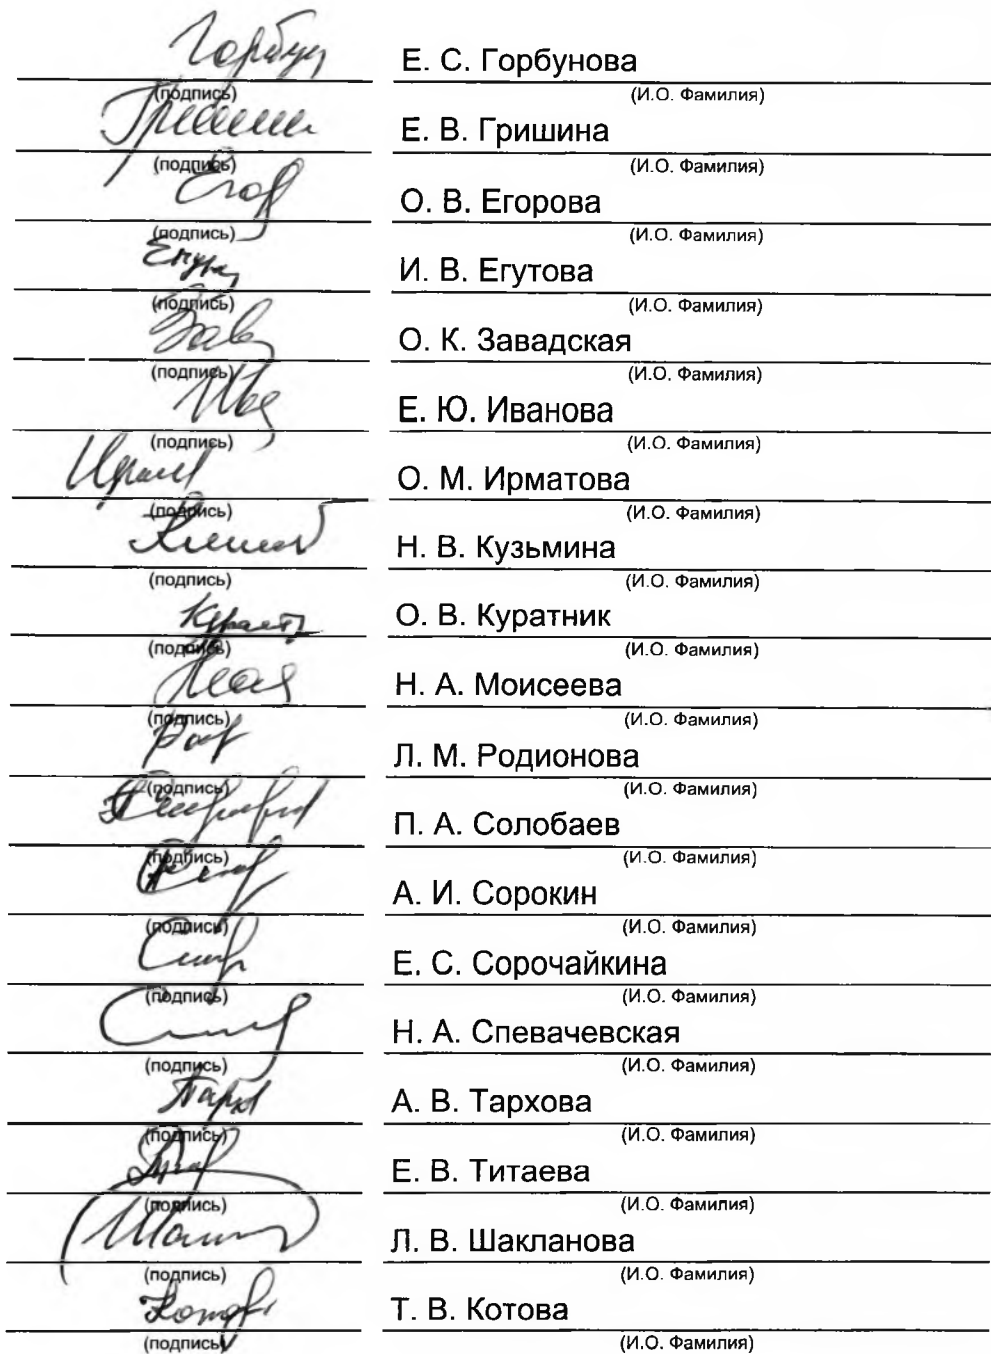 Е. С. Горбунова
(подпись) (И.О. Фамилия)
Е. В. Гришина
(подпись) (И.О. Фамилия)
О. В. Егорова
(подпись) (И.О. Фамилия)
И. В. Егутова
(подпись) (И.О. Фамилия)
О. К. Завадская
(подпись) (И.О. Фамилия)
Е. Ю. Иванова
(подпись) (И.О. Фамилия)
О. М. Ирматова
(подпись) (И.О. Фамилия)
Н. В. Кузьмина
(подпись) (И.О. Фамилия)
О. В. Куратник
(подпись) (И.О. Фамилия)
Н. А. Моисеева
(подпись) (И.О. Фамилия)
Л. М. Родионова
(подпись) (И.О. Фамилия)
П. А. Солобаев
(подпись) (И.О. Фамилия)
А. И. Сорокин
(подпись) (И.О. Фамилия)
Е. С. Сорочайкина
(подпись) (И.О. Фамилия)
Н. А. Спевачевская
(подпись) (И.О. Фамилия)
А. В. Тархова
(подпись) (И.О. Фамилия)
Е. В. Титаева
(подпись) (И.О. Фамилия)
Л. В. Шакланова
(подпись) (И.О. Фамилия)
Т. В. Котова
(подпись) (И.О. Фамилия)